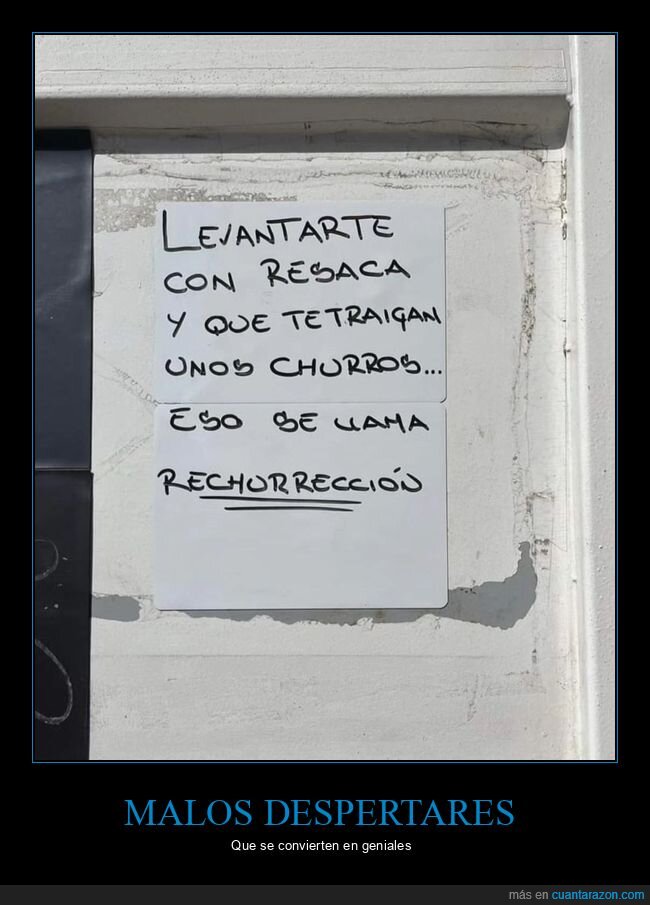 LEVANTARTE
CON RESACA
Y QUE TETRAIGAN
UNOS CHURROS...
ESO SE LLAMA
RECHURRECCIÓN
MALOS DESPERTARES
Que se convierten en geniales
más en cuantarazon.com